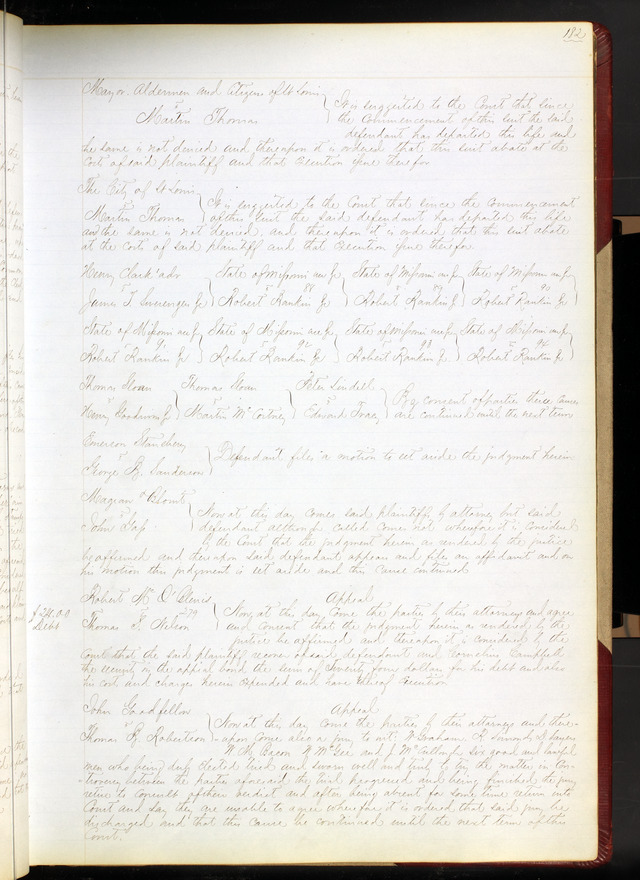 182
Mayor. Aldermen and Citizens of St Louis
vs
Martin Thomas
It is suggested to the Court that since
the Commencement of this suit the said
defendant has departed this life and
the same is not denied and thereupon it is ordered that this suit abate at the
Cost of said plaintiff and that Execution issue therefor
The City of St Louis
vs
Martin Thomas
It is suggested to the Court that since the Commencement
of this suit the said defendant has departed this life
and the same is not denied, and thereupon it is ordered that this suit abate
at the Cost of said plaintiff and that Execution issue therefor
Henry Clark adr State of Missouri use State of Missouri use State of Missouri use
vs vs 88 vs 89 vs 90
James T Swearingen Jr Robert Rankin Jr Robert Rankin Jr Robert Rankin Jr
State of Missouri use State of Missouri use State of Missouri use State of Missouri use
vs 91 vs 92 vs 93 vs 94
Robert Rankin Jr Robert Rankin Jr Robert Rankin Jr Robert Rankin Jr
Thomas Sloan Thomas Sloan Peter Lindell
vs vs vs
Henry Goodwin Martin McCortney Edward Tracy
By consent of parties these Causes
are continued until the next term
Emerson
vs
George B. Sanderson
Defendant files a motion to set aside the judgment herein
Blount
vs
John
Now at this day comes said plaintiff by attorney but said
defendant although called come not wherefore it is Considered
by the Court that the judgment herein as rendered by the justice
be affirmed and thereupon said defendant appears and files an affidavit and on
his motion this judgment is set aside and this cause continued
Robert Mc O'Blenis Appeal
vs 279
Thomas F. Nelson
$24.00
Debt
Now at this day come the parties by their attorneys and agree
and Consent that the judgment herein as rendered by the
justice be affirmed and thereupon it is considered by the
Court that the said plaintiff recover of said defendant and Cornelius Campbell
the security in the appeal bond the sum of Twenty four dollars for his debt and also
his cost and charges herein expended and have thereof Execution
John Goodfellow Appeal
vs
Thomas R. Robertson
Now at this day come the parties by their attorneys and there-
-upon Come also a jury to wit; W Graham R Simonds
W M Bacon W McGee and J McCullough six good and lawful
men who being duly Elected tried and sworn well and truly to try the matter in Con-
-troversy between the parties aforesaid the trial progressed and being finished the jury
retire to Consult of their verdict and after being absent for some time return into
Court and say they are unable to agree wherefore it is ordered that said jury be
discharged and that this cause be continued until the next term of this
Court.